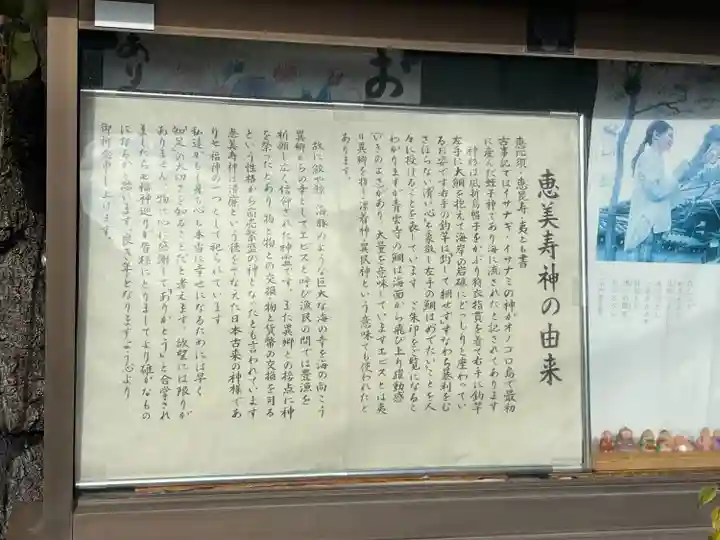 恵美寿神の由来
恵比須・恵昆寿・夷とも書
古事記ではイサナギ・イサナミの神がオノコロ島で最初
に産んだ蛭子神であり海に流されたと記されてあります
神形は風折烏帽子をかぶり狩衣指貫を着て右手に釣竿
左手に大鯛を抱えて海岸の岩礁にどっしりと座わってい
るお姿です右手の釣竿は「釣して網せず」すなわち暴利をむ
さぼらない清い心を象徴し左手の鯛はめでたいことを人
々に授けることを表しています ご朱印をご覧になると
わかりますが青雲寺の鯛は海面から飛び上り躍動感
いきのよさがあり、大量を意味していますエビスとは夷
は異郷を指し漂着神・異民神という意味でも使われたと
あります。
故に鮫や鯨、海豚のような巨大な海の幸を海の向こう
異郷からの幸としてエビスと呼び漁民の間では豊漁を
祈願し広く信仰された神霊です。また異郷との接点に神
を祭ったとあり物と物との交換・物と貨幣の交換を司る
という性格から商売繁盛の神となったとも言われています
恵美寿神は清廉という徳をそなえた日本古来の神様であ
り七福神の一つとして祀られています
私達が心も身も心も本当に幸せになるためには早く
「知足」の大切さを知ることだと考えます。欲望には限りが
ありません。物にも心に感謝して「ありがとう」と合掌され
ましたら七福神巡りが皆様にとりましてより確かなもの
になるかと思います。良き年となりますよう心より
御祈念申し上げます。
お
あり